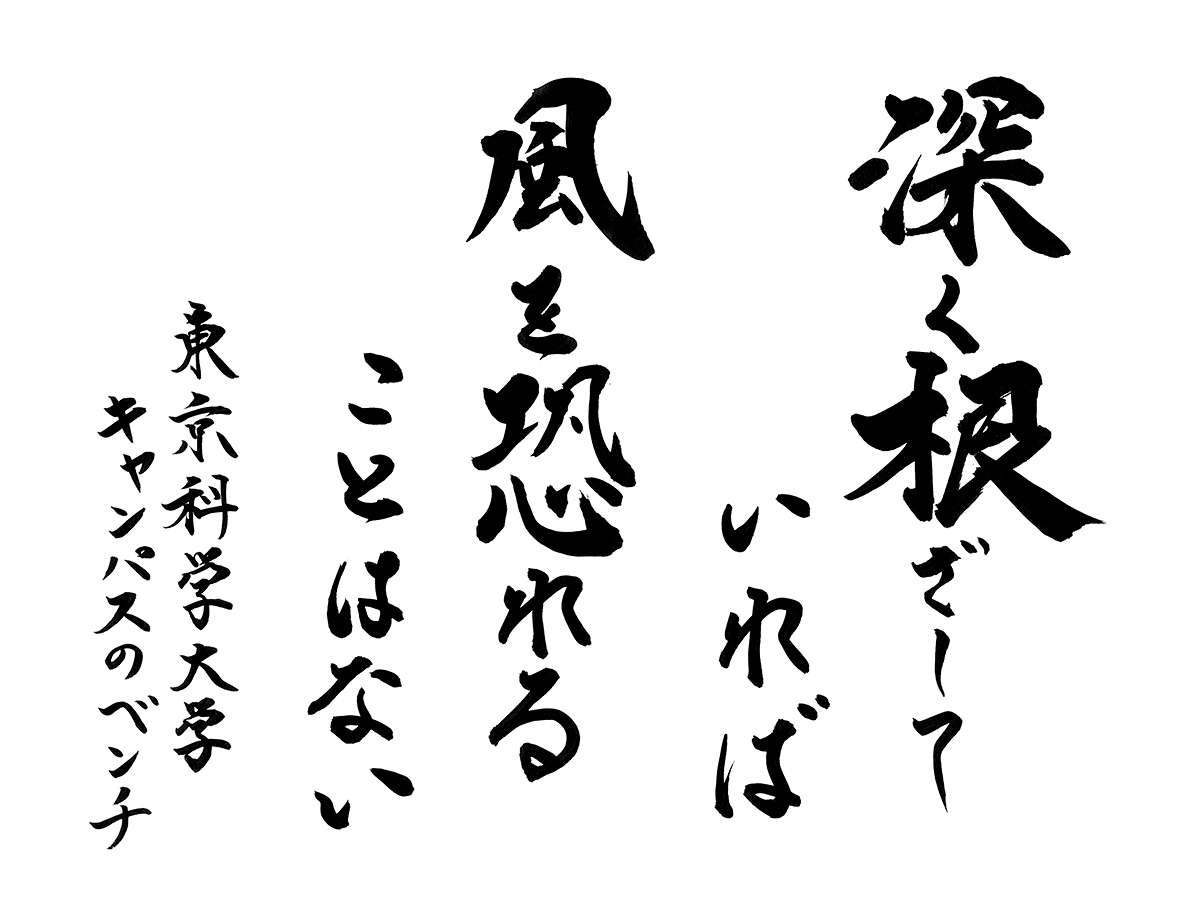 深く根ざして
いれば
風を恐れる
ことはない
東京科学大学
キャンパスのベンチ